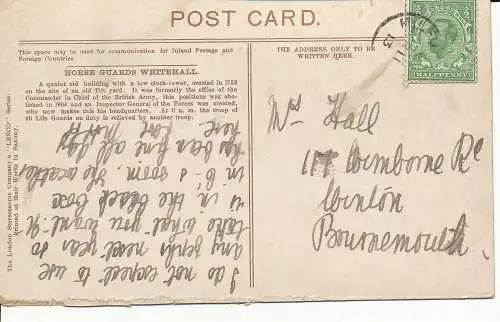 POST CARD.
This space may be used for communication for Inland Postage and
Foreign Countries
THE ADDRESS ONLY TO BE
WRITTEN HERE.
HORSE GUARDS WHITEHALL.
A quaint old building with a low clock-tower, erected in 1753
on the site of an old Tilt yard. It was formerly the office of the
Commander in Chief of the British Army, this positions was abo-
lished in 1904 and an Inspector General of the Forces was created,
who now makes this his headquarters. At 11 a. m. the troop of
40 Life Guards on duty is relieved by another troop.
The London Stereoscopic Company's "LESCO" Series.
Printed at their Works in Saxony.
HALFPENNY
13
Mrs Hall
117 Wimborne Rd
Winton
Bournemouth.
I do not expect to use
any jerseys next year so
take what you want. It
is in the black box
in G's room. The weather
has been fine all day
here.